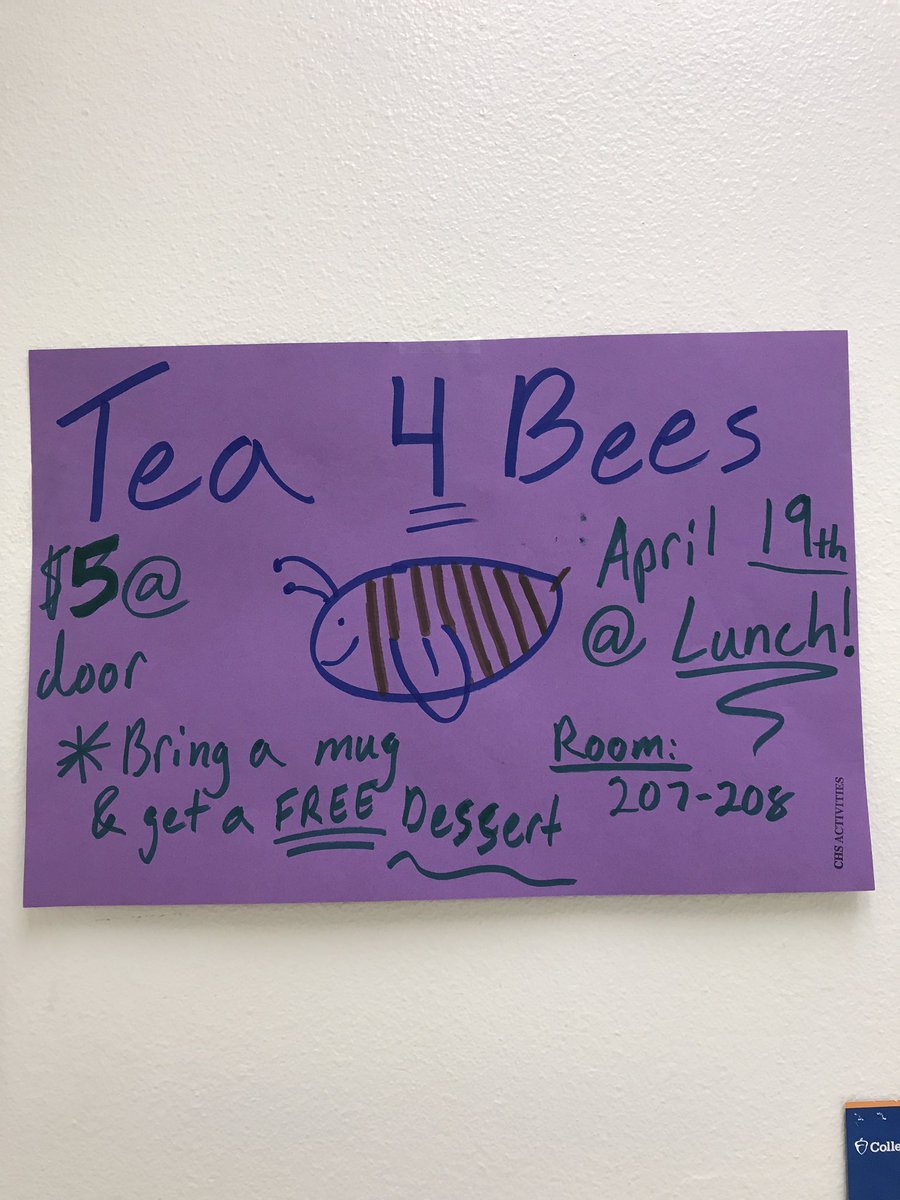 Tea 4 Bees
$5 @
door
April 19th
@ Lunch!
* Bring a mug
& get a FREE Dessert
Room:
207-208
CHS ACTIVITIES